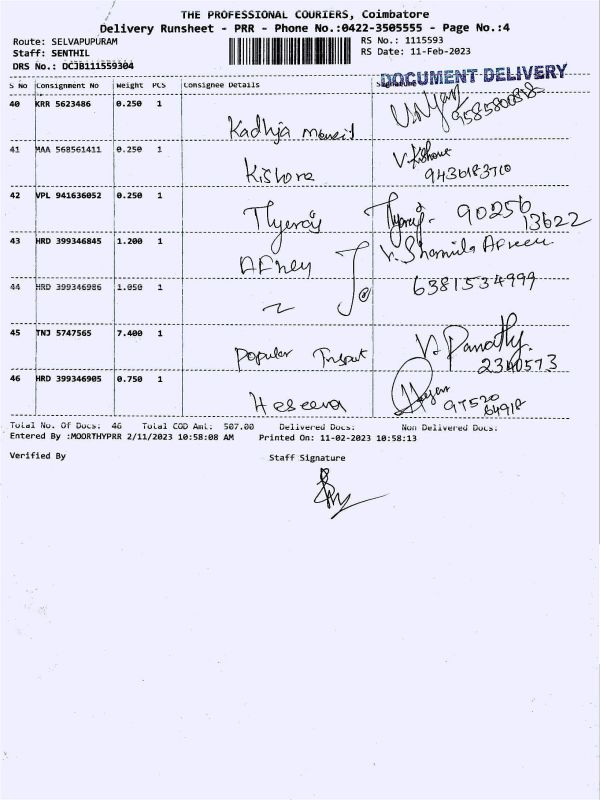 THE PROFESSIONAL COURIERS, Coimbatore
Delivery Runsheet - PRR - Phone No.:0422-3505555 - Page No.:4
Route: SELVAPUPURAM
RS No.: 1115593
Staff: SENTHIL
RS Date: 11-Feb-2023
DRS No.: DCJB111559304
DOCUMENT DELIVERY
S No Consignment No Weight PCS Consignee Details Signature
40 KRR 5623486 0.250 1
Kadhija
41 MAA 568561411 0.250 1
Kishore V. Kishore
42 VPL 941636052 0.250 1
90256
13622
43 HRD 399346845 1.200 1
V. Shamila Afreen
44 HRD 399346986 1.050 1
6381534999
45 TNJ 5747565 7.400 1
Popular
2340573
46 HRD 399346905 0.750 1
97520
64918
Total No. Of Docs: 46 Total COD Amt: 507.00 Delivered Docs: Non Delivered Docs:
Entered By :MOORTHYPRR 2/11/2023 10:58:08 AM Printed On: 11-02-2023 10:58:13
Verified By Staff Signature